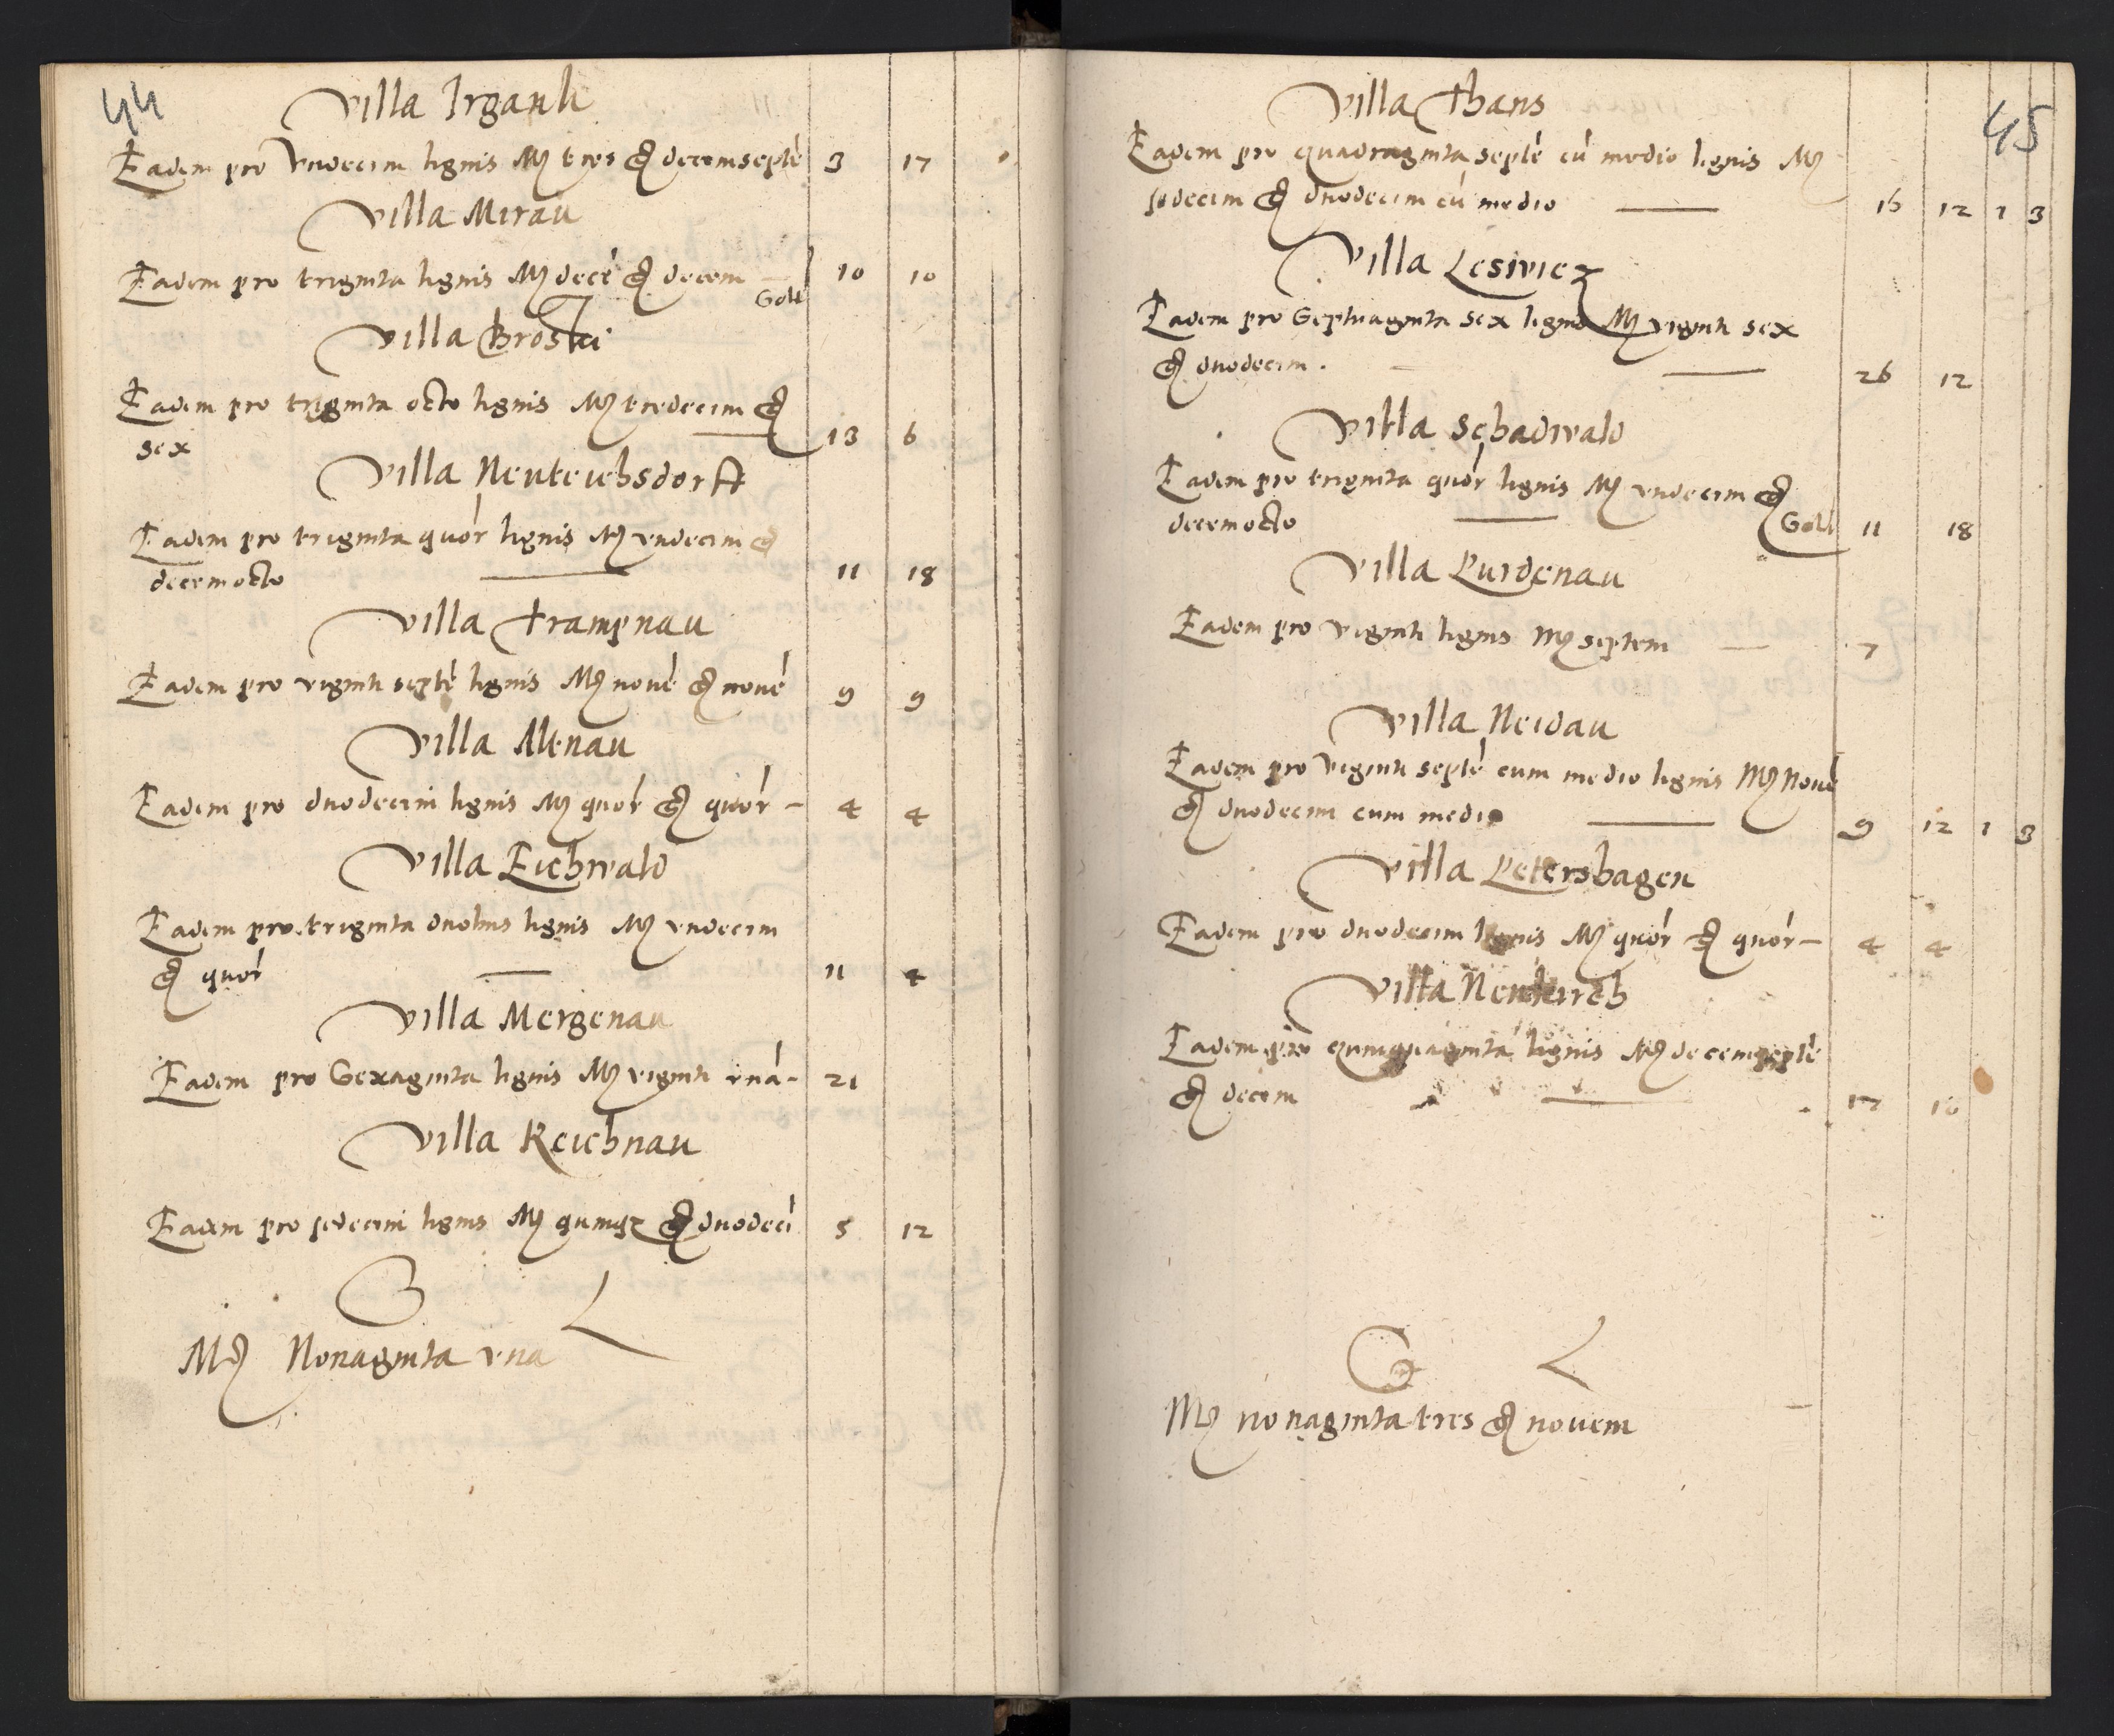 44
Villa Irgank
Eadem pro Vndecim lignis M tres g decemsepte 3 17
Villa Mirau
Eadem pro triginta lignis M dece g decem 10 10
Soll
Villa Broski
Eadem pro triginta octo lignis M tredecim g
sex 13 6
Villa Neuteichsdorff
Eadem pro triginta quor lignis M vndecim g
decemocto 11 18
Villa Trampnau
Eadem pro viginti septe lignis M noue g noue 9 9
Villa Altenau
Eadem pro duodecim lignis M quor g quor 4 4
Villa Eichwald
Eadem pro triginta duobus lignis M vndecim
g quor 11 4
Villa Mergenau
Eadem pro Sexaginta lignis M viginti vna 21
Villa Reichnau
Eadem pro sedecim lignis M quinqz g duodeci 5 12
S L
M Nonaginta vna
45
Villa Thans
Eadem pro quadraginta septe cu medio lignis M
sedecim g duodecim cu medio 16 12 1 3
Villa Lesiwicz
Eadem pro Septuaginta sex lignis M viginti sex
g duodecim. 26 12
Villa Schadwald
Eadem pro triginta quor lignis M vndecim g
decemocto Soll 11 18
Villa Purdenau
Eadem pro viginti lignis M septem 7
Villa Neidau
Eadem pro viginti septe cum medio lignis M Noue
g duodecim cum medio 9 12 1 3
Villa Petershagen
Eadem pro duodecim lignis M quor g quor 4 4
Villa Neukirch
Eadem pro quinquaginta lignis M decemsepte
g decem 17 10
S L
M nonaginta tres g nouem